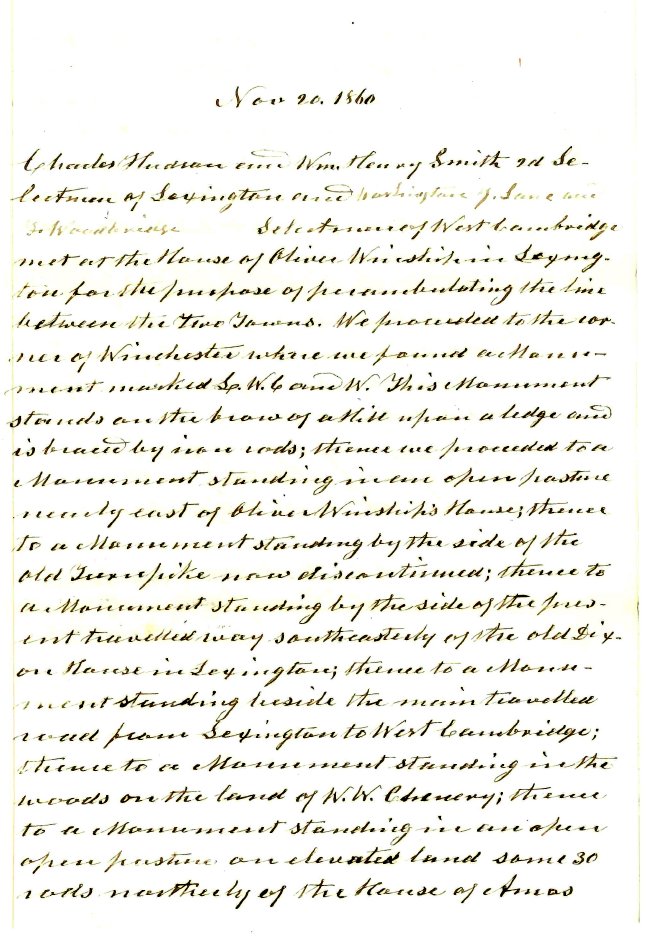 Nov 20. 1860
Charles Hudson and Wm. Henry Smith 2d Se-
lectmen of Lexington and Washington J. Lane and
Woodbridge Selectmen of West Cambridge
met at the House of Oliver Winship in Lexing-
ton for the purpose of perambulating the line
between the two Towns. We proceeded to the cor-
ner of Winchester where we found a Monu-
ment marked L. W. C and W. This Monument
stands on the brow of a Hill upon a ledge and
is braced by iron rods; thence we proceeded to a
Monument standing in an open pasture
nearly east of Oliver Winship's House; thence
to a Monument standing by the side of the
old Turnpike now discontinued; thence to
a Monument standing by the side of the pres-
ent travelled way southeasterly of the old Dix-
on House in Lexington; thence to a Monu-
ment standing beside the main travelled
road from Lexington to West Cambridge;
thence to a Monument standing in the
woods on the land of W. W. Chenery; thence
to a Monument standing in an open
open pasture on elevated land some 30
rods northerly of the House of Amos